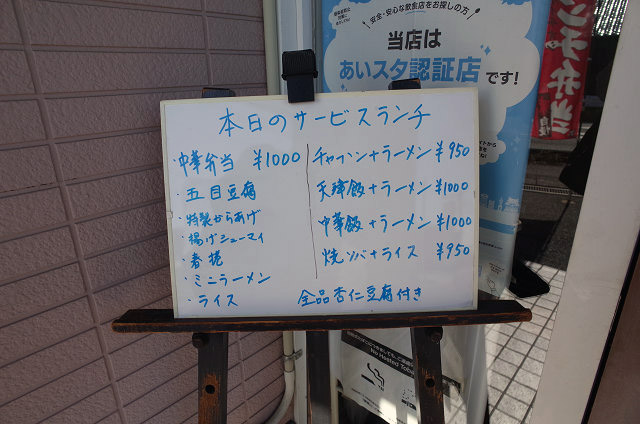 本日のサービスランチ
・中華弁当 ¥1000
・五目豆腐
・特製からあげ
・揚げシューマイ
・春捲
・ミニラーメン
・ライス
チャーハン+ラーメン ¥950
天津飯+ラーメン ¥1000
中華飯+ラーメン ¥1000
焼ソバ+ライス ¥950
全品杏仁豆腐付き
安全・安心な飲食店をお探しの方
当店は
あいスタ認証店です!
ンチ弁当